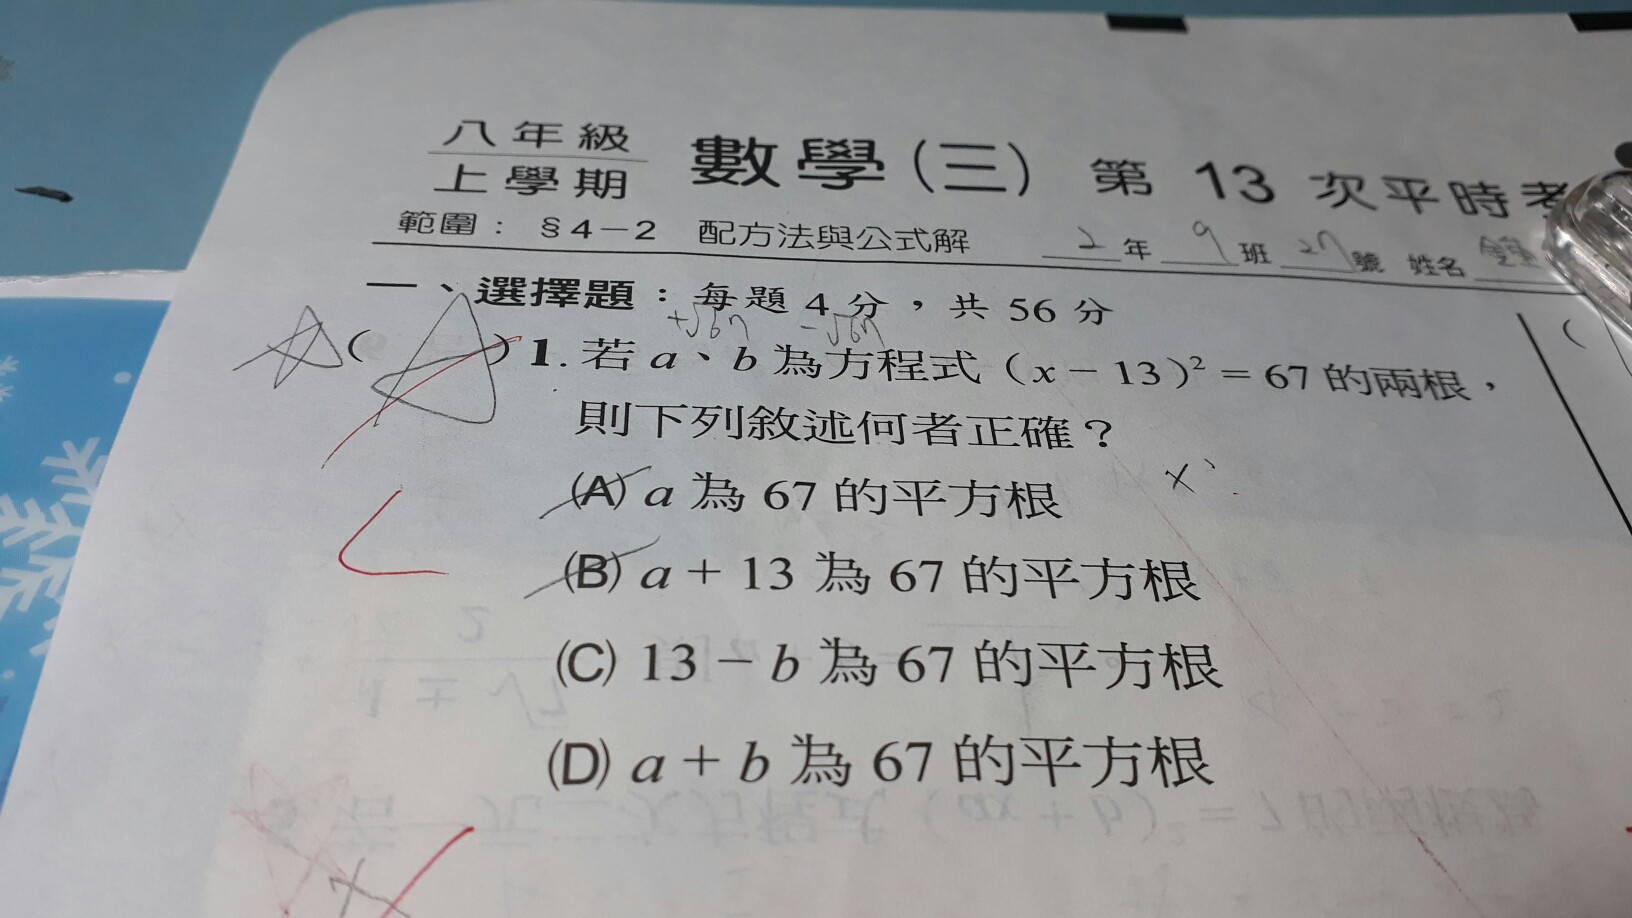 八年級
上學期
數學(三) 第 13 次平時考
範圍：§4－2 配方法與公式解 2年 9班 27號 姓名
一、選擇題：每題 4 分，共 56 分
+√67 -√67
( ) 1. 若 a、b 為方程式（x－13）²＝67 的兩根，
則下列敘述何者正確？
(A) a 為 67 的平方根
(B) a＋13 為 67 的平方根
(C) 13－b 為 67 的平方根
(D) a＋b 為 67 的平方根